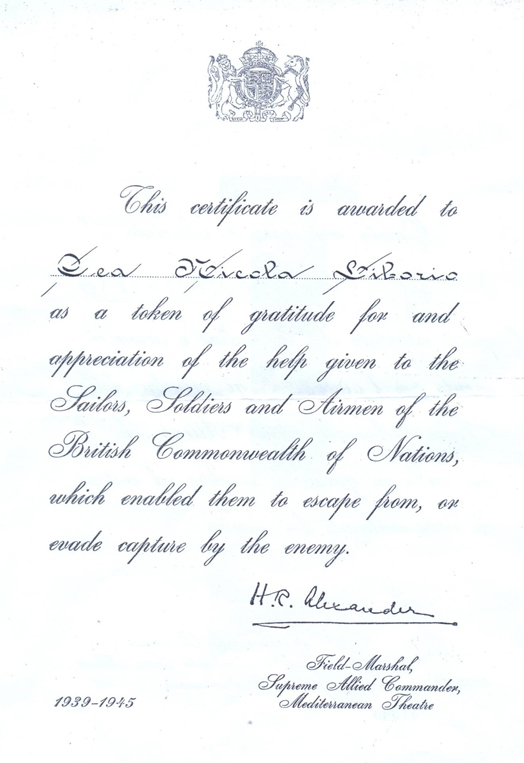 This certificate is awarded to
Nicola Liborio
as a token of gratitude for and
appreciation of the help given to the
Sailors, Soldiers and Airmen of the
British Commonwealth of Nations,
which enabled them to escape from, or
evade capture by the enemy.
H.R. Alexander
Field-Marshal,
Supreme Allied Commander,
Mediterranean Theatre
1939-1945